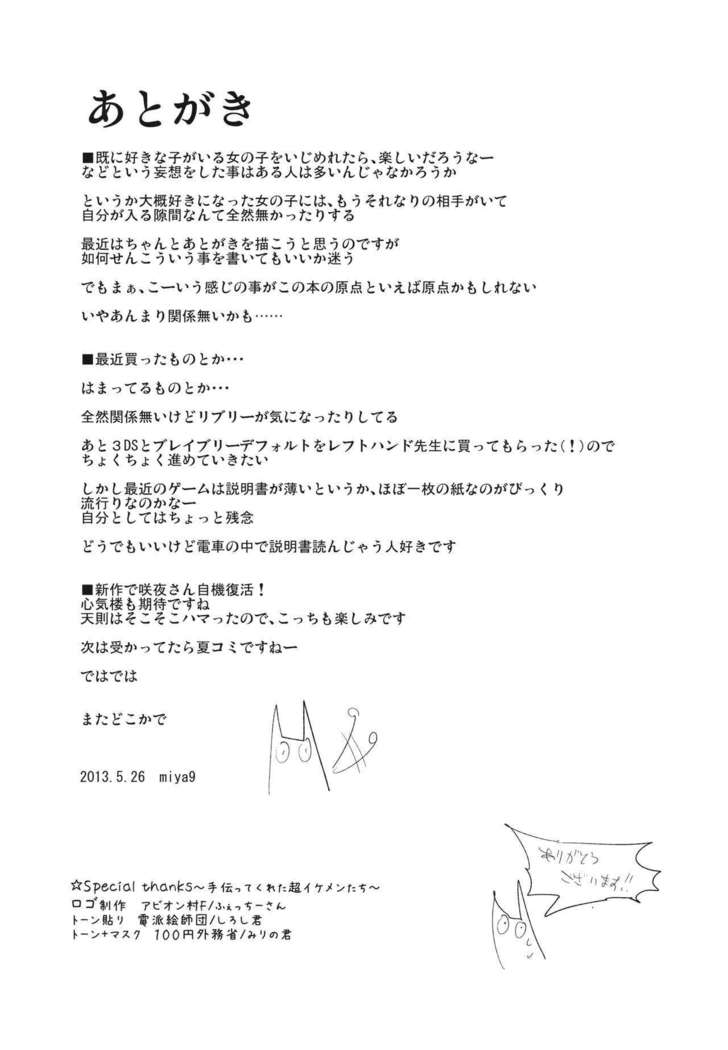 あとがき
■既に好きな子がいる女の子をいじめれたら、楽しいだろうなー
などという妄想をした事はある人は多いんじゃなかろうか
というか大概好きになった女の子には、もうそれなりの相手がいて
自分が入る隙間なんて全然無かったりする
最近はちゃんとあとがきを描こうと思うのですが
如何せんこういう事を書いてもいいか迷う
でもまぁ、こーいう感じの事がこの本の原点といえば原点かもしれない
いやあんまり関係無いかも……
■最近買ったものとか・・・
はまってるものとか・・・
全然関係無いけどリブリーが気になったりしてる
あと３DSとブレイブリーデフォルトをレフトハンド先生に買ってもらった(！)ので
ちょくちょく進めていきたい
しかし最近のゲームは説明書が薄いというか、ほぼ一枚の紙なのがびっくり
流行りなのかなー
自分としてはちょっと残念
どうでもいいけど電車の中で説明書読んじゃう人好きです
■新作で咲夜さん自機復活！
心気楼も期待ですね
天則はそこそこハマったので、こっちも楽しみです
次は受かってたら夏コミですねー
ではでは
またどこかで
2013.5.26 miya9
ありがとう
ございます!!
☆Special thanks～手伝ってくれた超イケメンたち～
ロゴ制作 アビオン村F/ふぇっちーさん
トーン貼り 電派絵師団/しろし君
トーン+マスク 100円外務省/みりの君